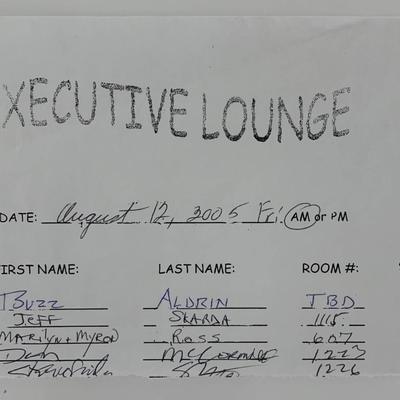 XECUTIVE LOUNGE
DATE: August 12, 2005 Fri AM or PM
FIRST NAME: LAST NAME: ROOM #:
Buzz ALDRIN TBD
JEFF SKARDA 1115
MARILYN + MYRON ROSS 607
McCormick 1227
1226